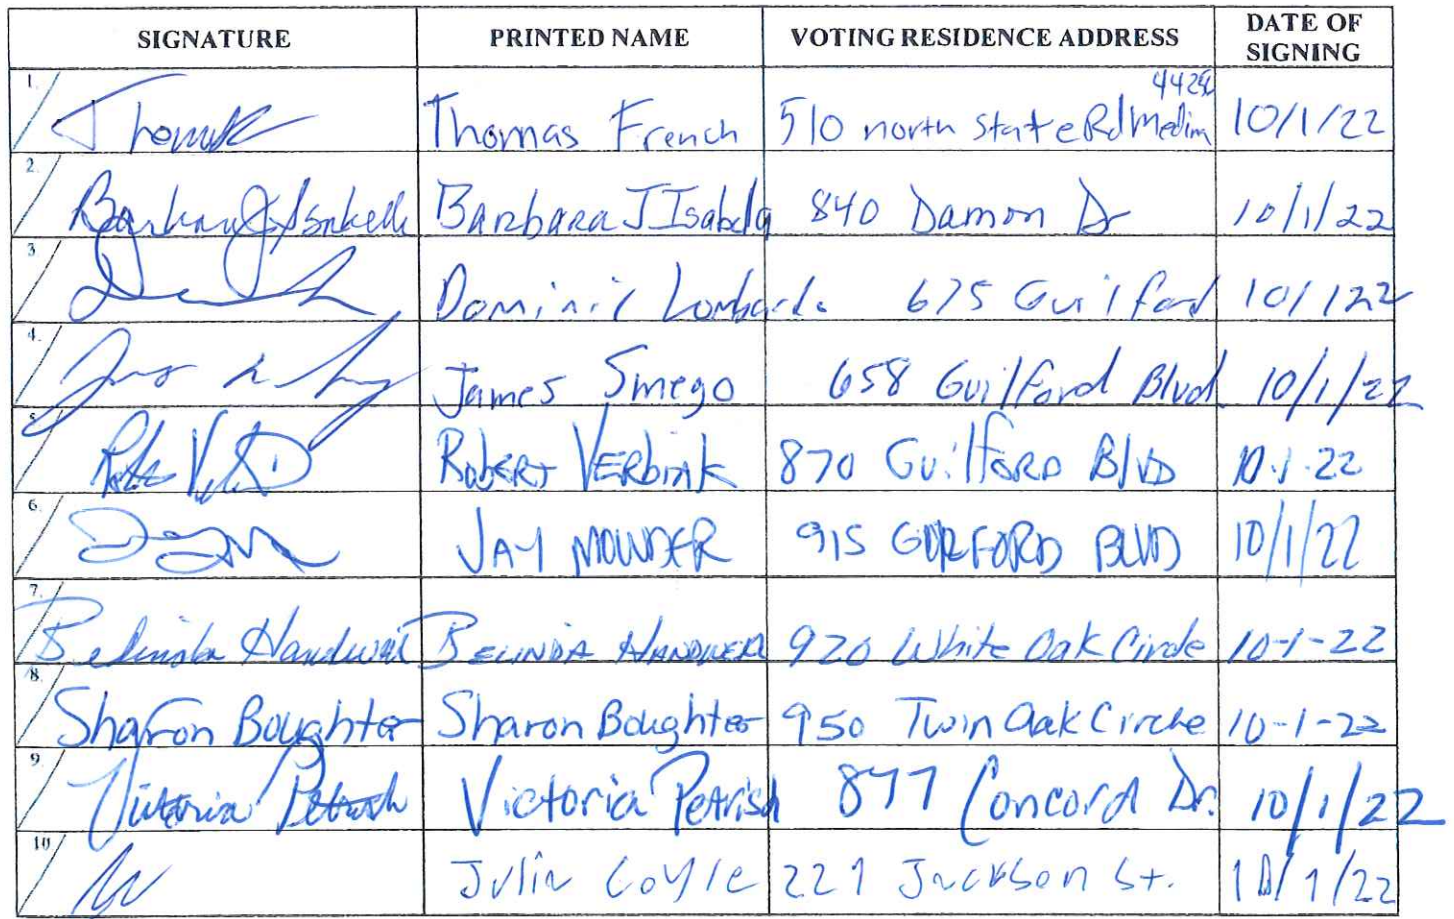 SIGNATURE PRINTED NAME VOTING RESIDENCE ADDRESS DATE OF SIGNING
1. Thomas French 510 north State Rd Medina 44256 10/1/22
2. Barbara J Isabella Barbara J Isabella 840 Damon Dr 10/1/22
3 Dominic Lombardo 675 Guilford 10/1/22
4. James Smego 658 Guilford Blvd 10/1/22
5. Robert Verbink 870 Guilford Blvd 10.1.22
6. JAY MOWDER 915 GUILFORD BLVD 10/1/22
7. Belinda Handwerk BELINDA 920 White Oak Circle 10-1-22
8. Sharon Boughter Sharon Boughter 950 Twin Oak Circle 10-1-22
9. Victoria Petrish Victoria Petrish 877 Concord Dr. 10/1/22
10 Julie Coyle 221 Jackson St. 10/1/22